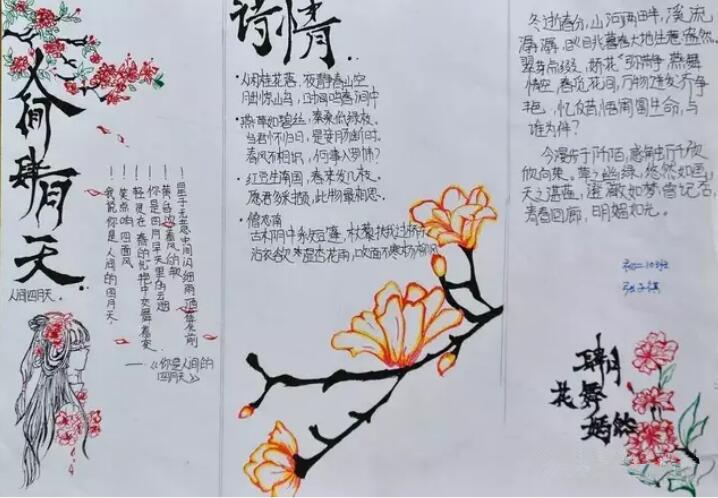 人间肆月天
人间四月天。
我说你是人间的四月天；
笑点响四面风
轻灵在春的光艳中交舞着变
你是四月早天里的云烟
黄昏吹着风的软
星子在无意中闪细雨洒在花前
——《你是人间的
四月天》
诗情
·人闲桂花落，夜静春山空
月出惊山鸟，时鸣春涧中
·燕草如碧丝，秦桑低绿枝。
当君怀归日，是妾断肠时。
春风不相识，何事入罗帏？
·红豆生南国，春来发几枝。
愿君多采撷，此物最相思。
·僧志南
古木阴中系短篷，杖藜扶我过桥东
沾衣欲湿杏花雨，吹面不寒杨柳风
冬逝春分，山河两畔，溪流
潺潺，
翠芽点缀，娇花 燕舞
悟空，春览花间，万物迸发，齐争
艳，忆及昔悟周围生命，与
谁为伴？
今漫步于阡陌，感角虫千欣
欣向荣。草之幽绿，悠然如困，
天之湛蓝，澄澈如梦，曾记否，
春春回廊，明媚如光。
初二10班
张子淇
肆月
花舞
嫣然